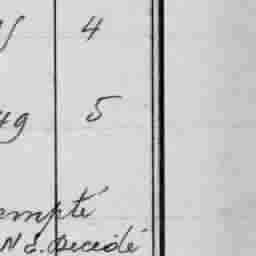 4
49 5
empté
N d. Décédé